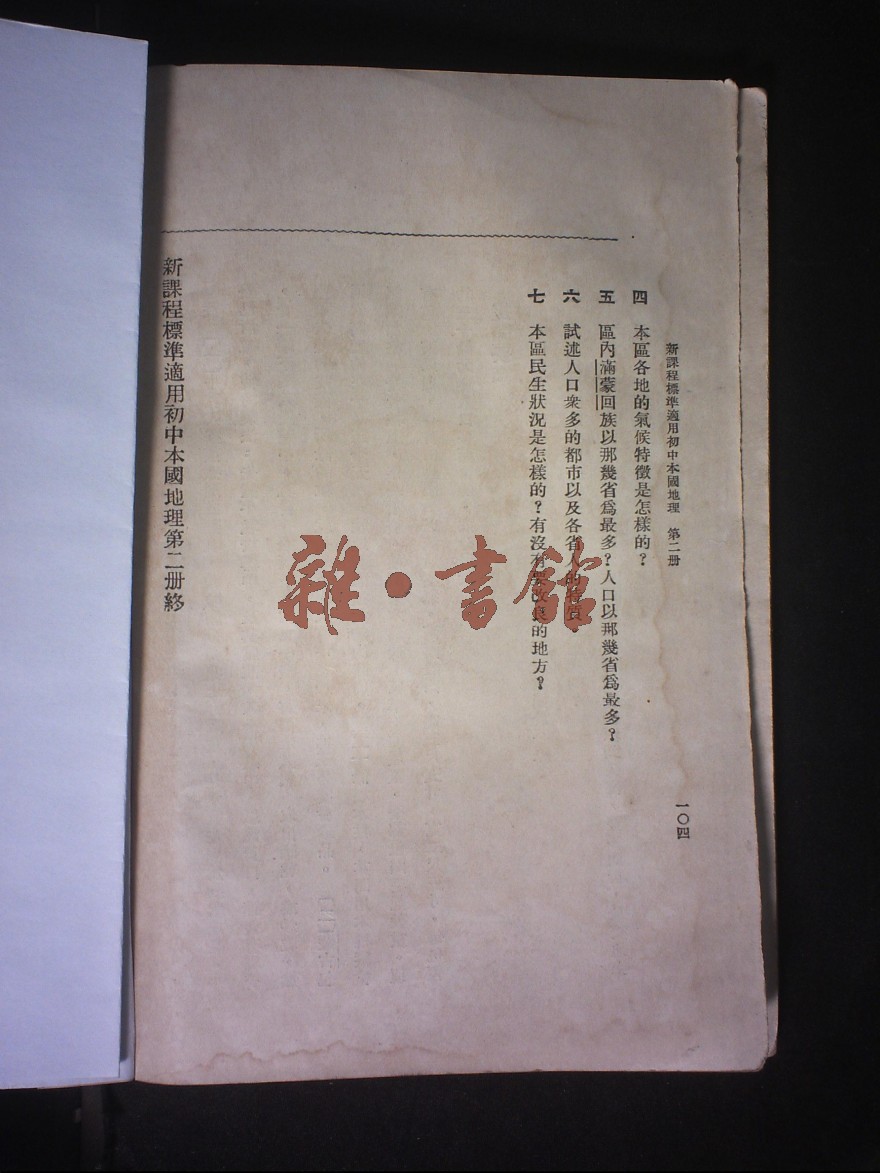 新課程標準適用初中本國地理 第二册
一〇四
四 本區各地的氣候特徵是怎樣的？
五 區內滿蒙回族以那幾省爲最多？人口以那幾省爲最多？
六 試述人口衆多的都市以及各省人的特質。
七 本區民生狀況是怎樣的？有沒有要改良的地方？
新課程標準適用初中本國地理第二册終
雜·書館